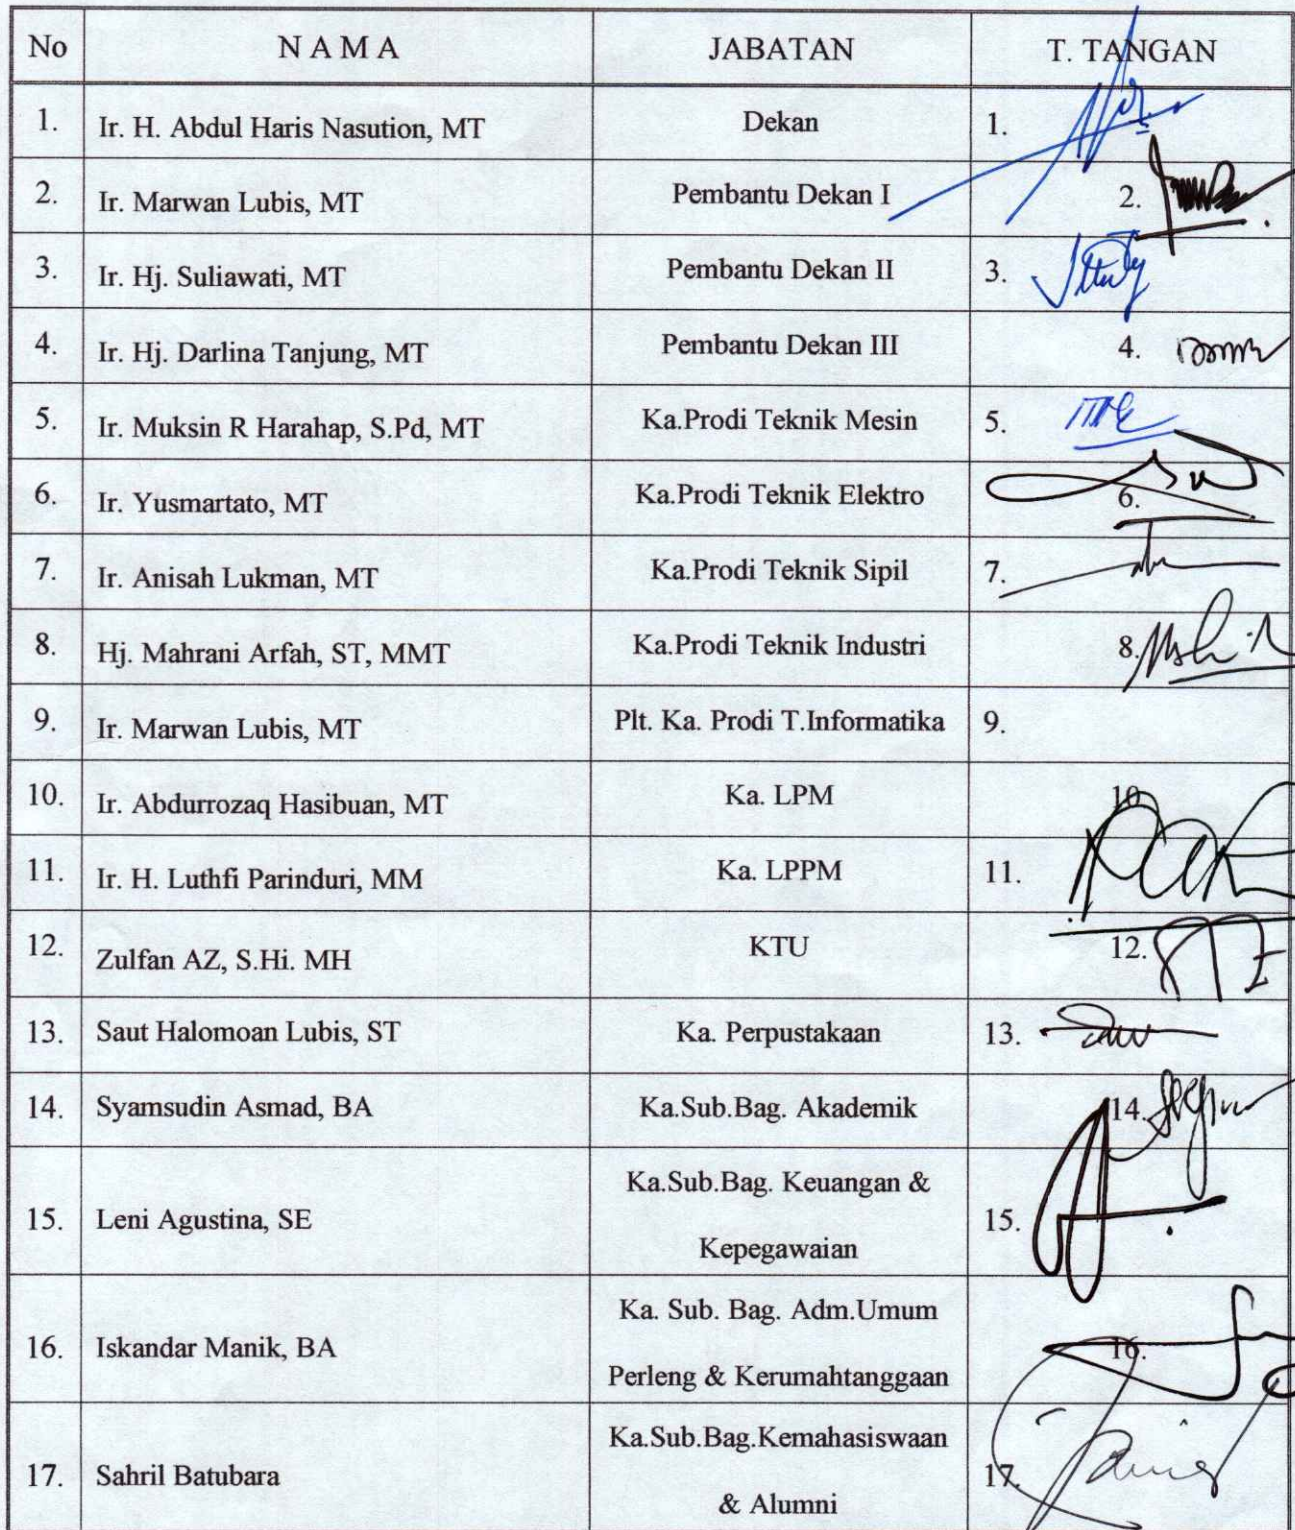 No N A M A JABATAN T. TANGAN
1. Ir. H. Abdul Haris Nasution, MT Dekan 1.
2. Ir. Marwan Lubis, MT Pembantu Dekan I 2.
3. Ir. Hj. Suliawati, MT Pembantu Dekan II 3.
4. Ir. Hj. Darlina Tanjung, MT Pembantu Dekan III 4.
5. Ir. Muksin R Harahap, S.Pd, MT Ka.Prodi Teknik Mesin 5.
6. Ir. Yusmartato, MT Ka.Prodi Teknik Elektro 6.
7. Ir. Anisah Lukman, MT Ka.Prodi Teknik Sipil 7.
8. Hj. Mahrani Arfah, ST, MMT Ka.Prodi Teknik Industri 8.
9. Ir. Marwan Lubis, MT Plt. Ka. Prodi T.Informatika 9.
10. Ir. Abdurrozaq Hasibuan, MT Ka. LPM 10.
11. Ir. H. Luthfi Parinduri, MM Ka. LPPM 11.
12. Zulfan AZ, S.Hi. MH KTU 12.
13. Saut Halomoan Lubis, ST Ka. Perpustakaan 13.
14. Syamsudin Asmad, BA Ka.Sub.Bag. Akademik 14.
15. Leni Agustina, SE Ka.Sub.Bag. Keuangan &
Kepegawaian 15.
16. Iskandar Manik, BA Ka. Sub. Bag. Adm.Umum
Perleng & Kerumahtanggaan 16.
17. Sahril Batubara Ka.Sub.Bag.Kemahasiswaan
& Alumni 17.